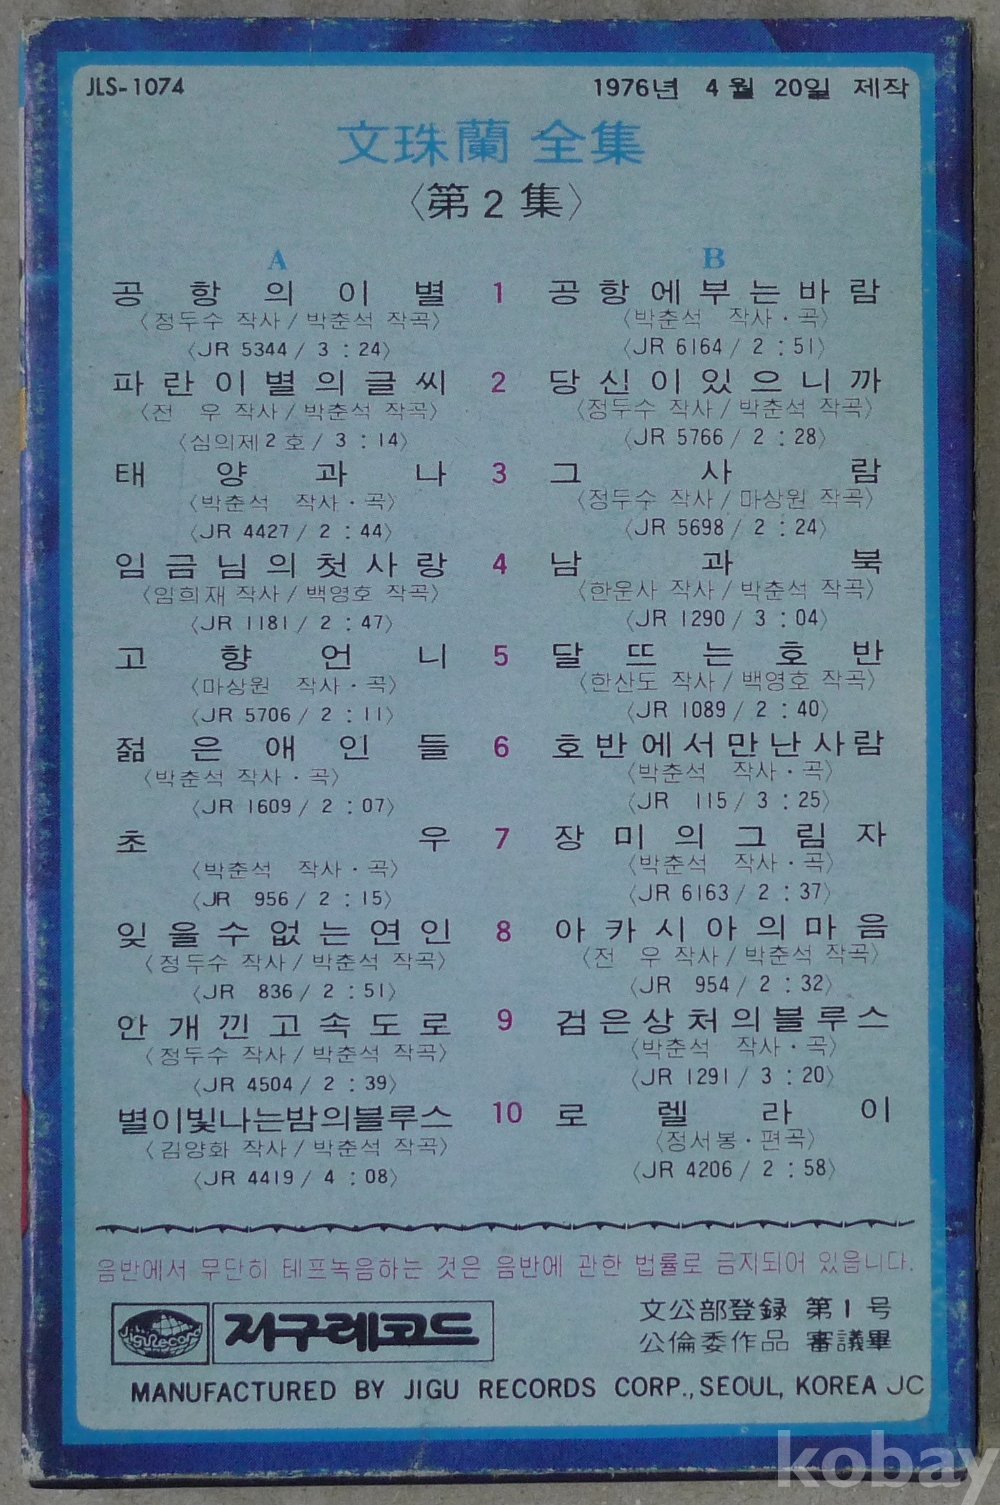 JLS-1074
1976년 4월 20일 제작
文珠蘭 全集
〈第2集〉
A
공항의이별
〈정두수 작사/박춘석 작곡〉
〈JR 5344/3:24〉
파란이별의글씨
〈전 우 작사/박춘석 작곡〉
〈심의제2호/3:14〉
태양과나
〈박춘석 작사·곡〉
〈JR 4427/2:44〉
임금님의첫사랑
〈임희재 작사/백영호 작곡〉
〈JR 1181/2:47〉
고향언니
〈마상원 작사·곡〉
〈JR 5706/2:11〉
젊은애인들
〈박춘석 작사·곡〉
〈JR 1609/2:07〉
초우
〈박춘석 작사·곡〉
〈JR 956/2:15〉
잊을수없는연인
〈정두수 작사/박춘석 작곡〉
〈JR 836/2:51〉
안개낀고속도로
〈정두수 작사/박춘석 작곡〉
〈JR 4504/2:39〉
별이빛나는밤의블루스
〈김양화 작사/박춘석 작곡〉
〈JR 4419/4:08〉
1
2
3
4
5
6
7
8
9
10
B
공항에부는바람
〈박춘석 작사·곡〉
〈JR 6164/2:51〉
당신이있으니까
〈정두수 작사/박춘석 작곡〉
〈JR 5766/2:28〉
그사람
〈정두수 작사/마상원 작곡〉
〈JR 5698/2:24〉
남과북
〈한운사 작사/박춘석 작곡〉
〈JR 1290/3:04〉
달뜨는호반
〈한산도 작사/백영호 작곡〉
〈JR 1089/2:40〉
호반에서만난사람
〈박춘석 작사·곡〉
〈JR 115/3:25〉
장미의그림자
〈박춘석 작사·곡〉
〈JR 6163/2:37〉
아카시아의마음
〈전 우 작사/박춘석 작곡〉
〈JR 954/2:32〉
검은상처의블루스
〈박춘석 작사·곡〉
〈JR 1291/3:20〉
로렐라이
〈정서봉·편곡〉
〈JR 4206/2:58〉
음반에서 무단히 테프녹음하는 것은 음반에 관한 법률로 금지되어 있읍니다.
JiguRecord
지구레코드
文公部登録 第1号
公倫委作品 審議畢
MANUFACTURED BY JIGU RECORDS CORP., SEOUL, KOREA JC
kobay